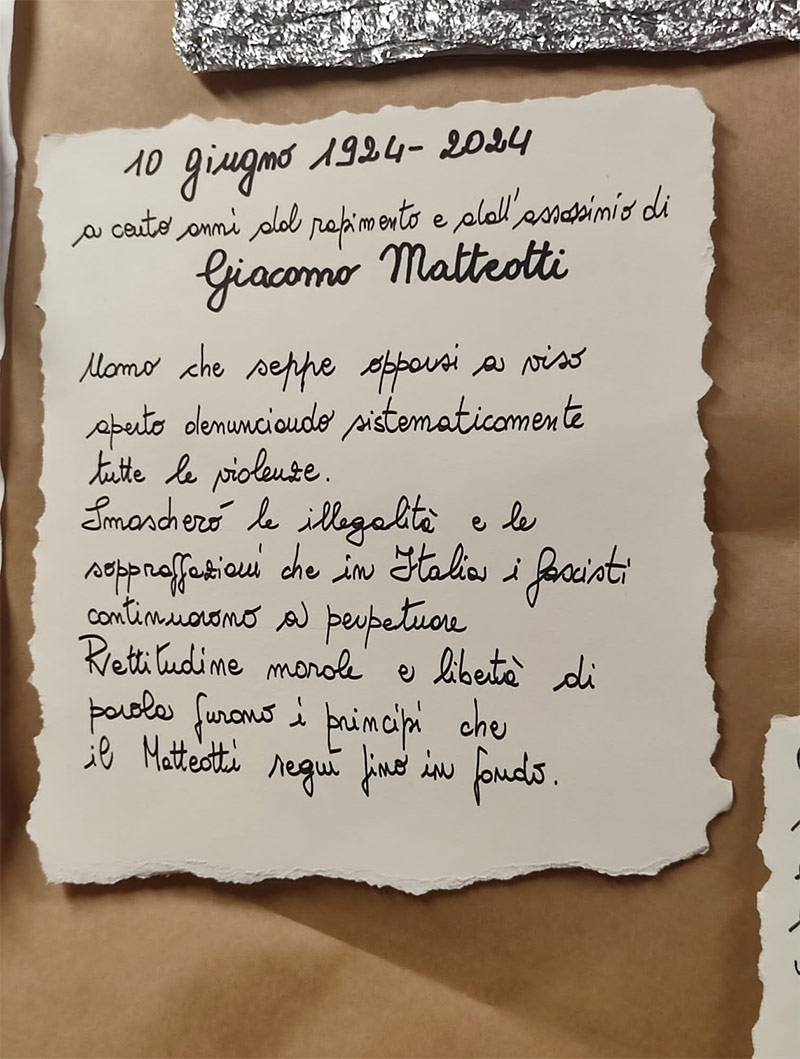 10 giugno 1924-2024
a cento anni dal rapimento e dall'assassinio di
Giacomo Matteotti
Uomo che seppe opporsi a viso
aperto denunciando sistematicamente
tutte le violenze.
Smascherò le illegalità e le
sopraffazioni che in Italia i fascisti
continuarono a perpetuare
Rettitudine morale e libertà di
parola furono i principi che
il Matteotti seguì fino in fondo.